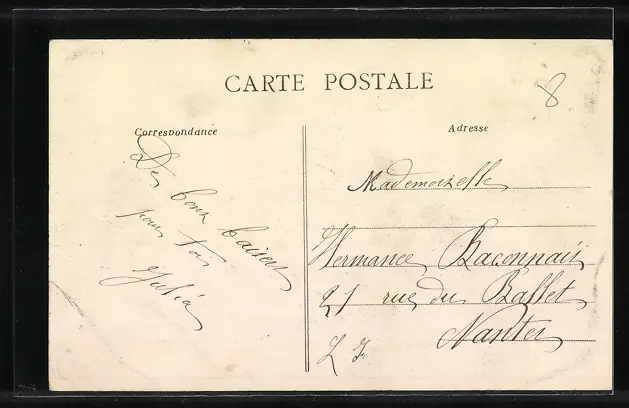 CARTE POSTALE
8
Correspondance
Adresse
Des bons baisers
pour toi
Julia
Mademoiselle
Hermance Baconnais
21 rue du Ballet
Nantes
L F